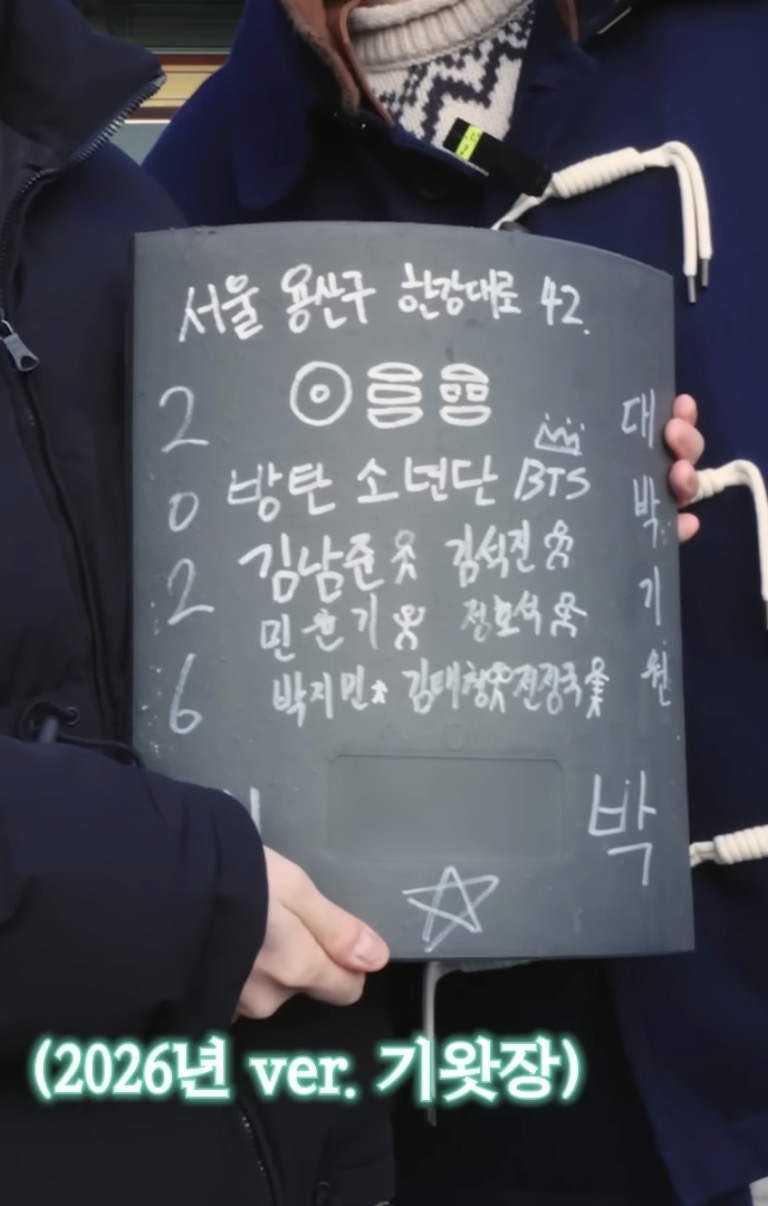 서울 용산구 한강대로 42.
2026
방탄 소년단 BTS
김남준 김석진
민윤기 정호석
박지민 김태형 전정국
대박기원
박
(2026년 ver. 기왓장)